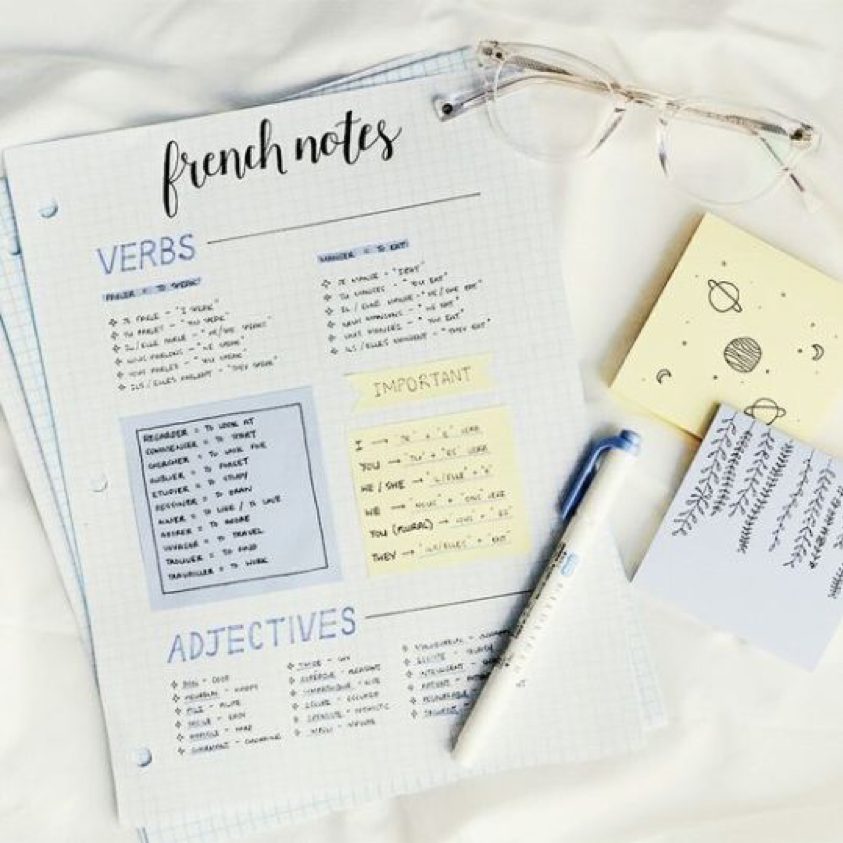 french notes
VERBS
PARLER = TO SPEAK
JE PARLE - "I SPEAK"
TU PARLES - "YOU SPEAK"
IL/ELLE PARLE - "HE/SHE SPEAKS"
NOUS PARLONS - "WE SPEAK"
VOUS PARLEZ - "YOU SPEAK"
ILS/ELLES PARLENT - "THEY SPEAK"
MANGER = TO EAT
JE MANGE - "I EAT"
TU MANGES - "YOU EAT"
IL/ELLE MANGE - "HE/SHE EAT"
NOUS MANGONS - "WE EAT"
VOUS MANGEZ - "YOU EAT"
ILS/ELLES MANGENT - "THEY EAT"
REGARDER = TO LOOK AT
COMMENCER = TO START
CHERCHER = TO LOOK FOR
OUBLIER = TO FORGET
ETUDIER = TO STUDY
DESSINER = TO DRAW
AIMER = TO LIKE / TO LOVE
ADORER = TO ADORE
VOYAGER = TO TRAVEL
TROUVER = TO FIND
TRAVAILLER = TO WORK
IMPORTANT
I → "JE" + "E" VERB
YOU → "TU" + "ES" VERB
HE / SHE → "IL/ELLE" + "E"
WE → "NOUS" + "ONS" VERB
YOU (PLURAL) → "VOUS" + "EZ"
THEY → "ILS/ELLES" + "ENT"
ADJECTIVES
BON - GOOD
HEUREUX - HAPPY
POLI - POLITE
FACILE - EASY
DIFFICILE - HARD
CHARMANT - CHARMING
TRISTE - SAD
AGRÉABLE - PLEASANT
SYMPATHIQUE - NICE
INTELLIGENT
PATIENT